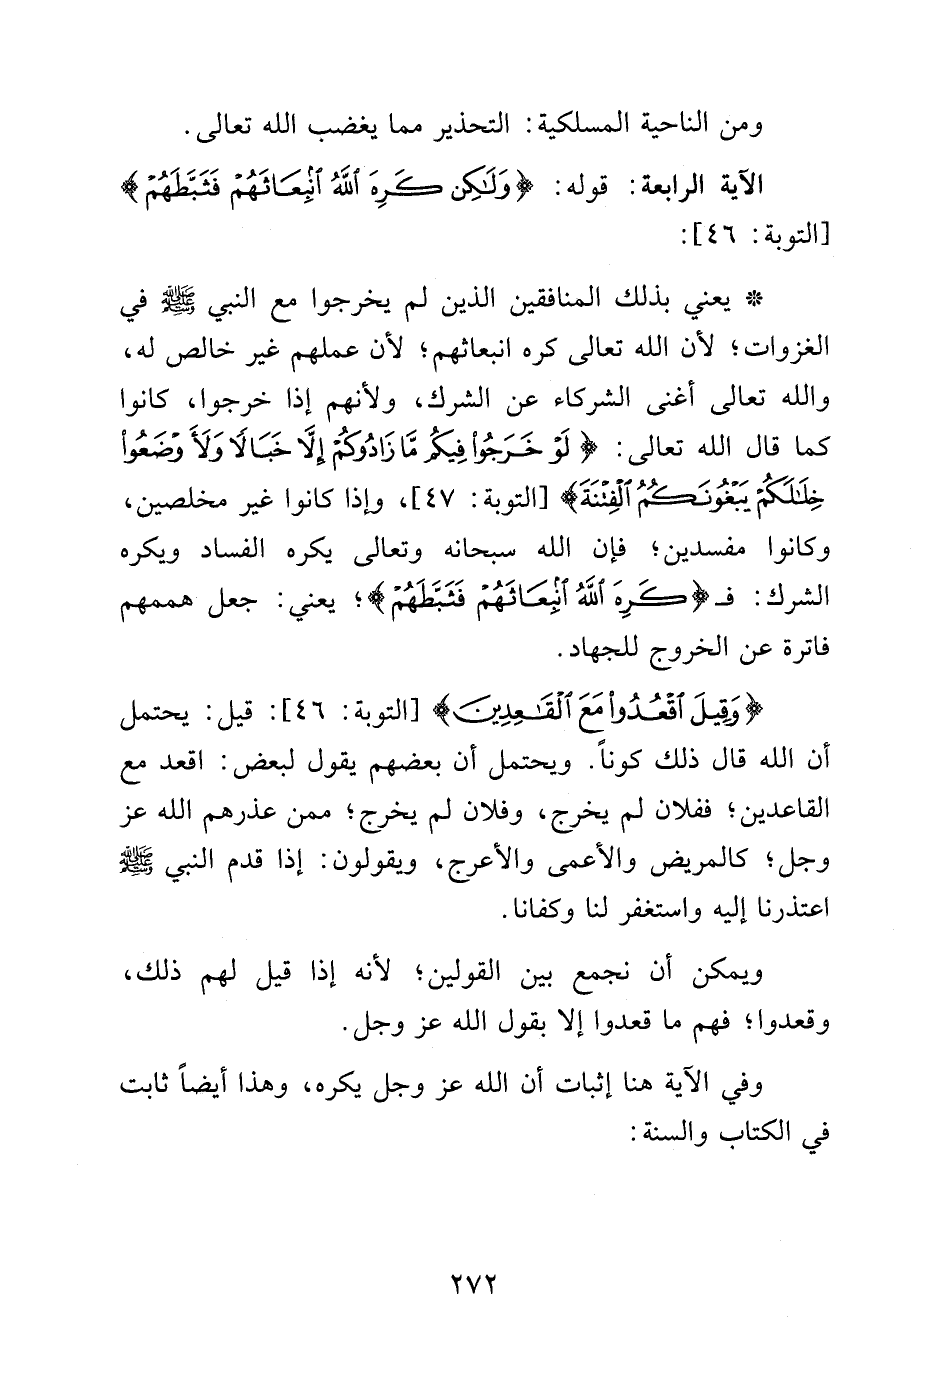 ومن الناحية المسلكية: التحذير مما يغضب الله تعالى.
الآية الرابعة: قوله: ﴿وَلَٰكِن كَرِهَ ٱللَّهُ ٱنۢبِعَاثَهُمْ فَثَبَّطَهُمْ﴾
[التوبة: ٤٦]:
* يعني بذلك المنافقين الذين لم يخرجوا مع النبي ﷺ في
الغزوات؛ لأن الله تعالى كره انبعاثهم؛ لأن عملهم غير خالص له،
والله تعالى أغنى الشركاء عن الشرك، ولأنهم إذا خرجوا، كانوا
كما قال الله تعالى: ﴿لَوْ خَرَجُوا۟ فِيكُم مَّا زَادُوكُمْ إِلَّا خَبَالًا وَلَأَوْضَعُوا۟
خِلَٰلَكُمْ يَبْغُونَكُمُ ٱلْفِتْنَةَ﴾ [التوبة: ٤٧]، وإذا كانوا غير مخلصين،
وكانوا مفسدين؛ فإن الله سبحانه وتعالى يكره الفساد ويكره
الشرك: فـ﴿كَرِهَ ٱللَّهُ ٱنۢبِعَاثَهُمْ فَثَبَّطَهُمْ﴾؛ يعني: جعل هممهم
فاترة عن الخروج للجهاد.
﴿وَقِيلَ ٱقْعُدُوا۟ مَعَ ٱلْقَٰعِدِينَ﴾ [التوبة: ٤٦]: قيل: يحتمل
أن الله قال ذلك كوناً. ويحتمل أن بعضهم يقول لبعض: اقعد مع
القاعدين؛ ففلان لم يخرج، وفلان لم يخرج؛ ممن عذرهم الله عز
وجل؛ كالمريض والأعمى والأعرج، ويقولون: إذا قدم النبي ﷺ
اعتذرنا إليه واستغفر لنا وكفانا.
ويمكن أن نجمع بين القولين؛ لأنه إذا قيل لهم ذلك،
وقعدوا؛ فهم ما قعدوا إلا بقول الله عز وجل.
وفي الآية هنا إثبات أن الله عز وجل يكره، وهذا أيضاً ثابت
في الكتاب والسنة:
٢٧٢